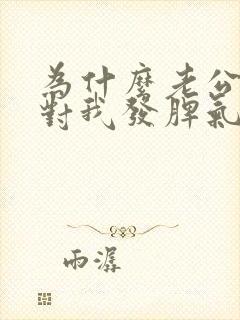 為什麼老公
對我發脾氣
雨潺